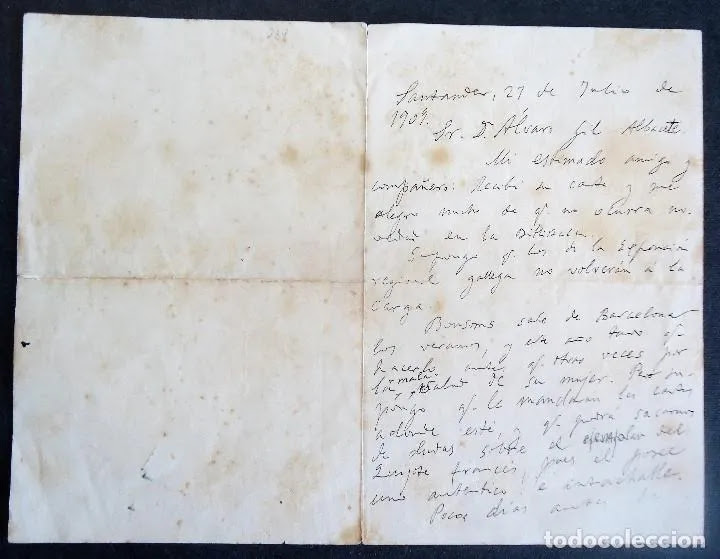 268
Santander, 27 de Julio de
1909.
Sr. D. Álvaro Gil Albacete
Mi estimado amigo y
compañero: Recibí su carta y me
alegro mucho de q. no ocurra no-
vedad en la Biblioteca.
Supongo q. los de la Exposición
regional gallega no volverán á la
carga.
Bonsoms sale de Barcelona
los veranos, y este año tuvo q.
hacerlo antes q. otras veces por
la mala salud de su mujer. Pero su-
pongo q. le mandarán las cartas
adonde esté, y q. podrá sacarnos
de dudas sobre el ejemplar del
Quijote francés, pues el posee
uno auténtico é intachable.
Pocos días antes de
todocoleccion.net